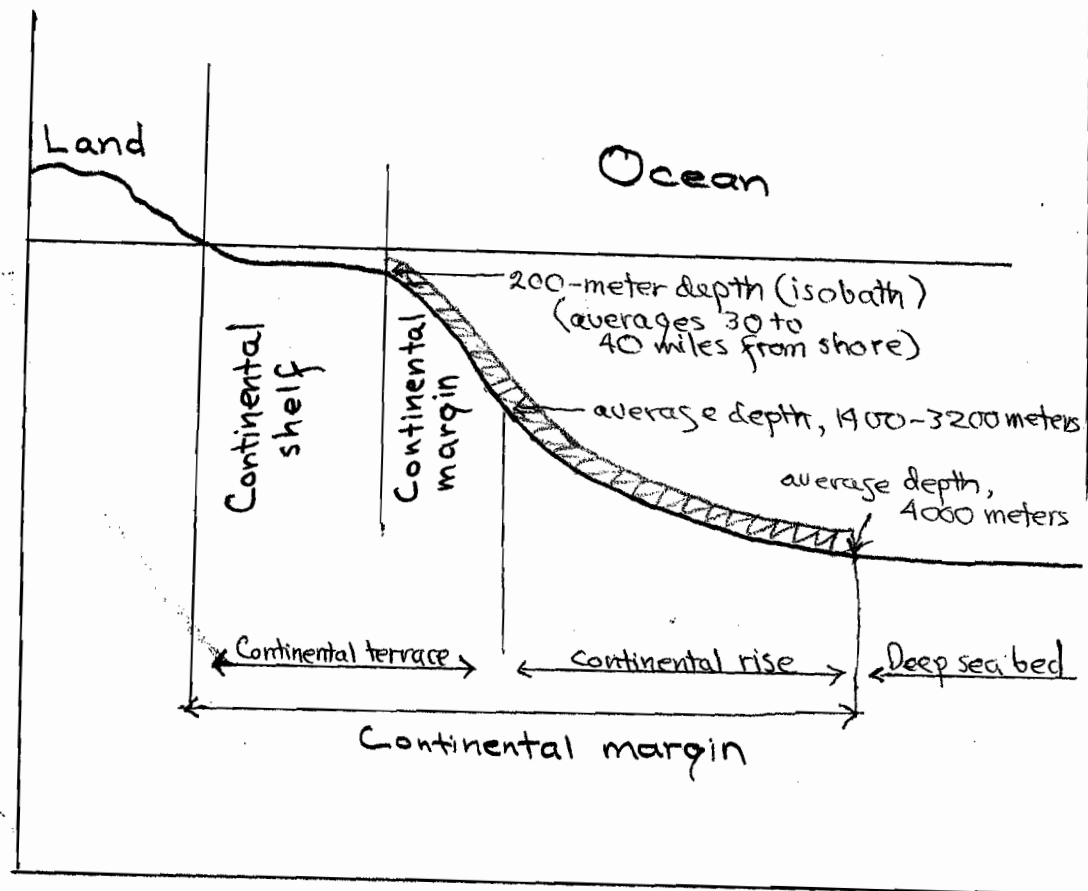 Land
Ocean
200-meter depth (isobath)
(averages 30 to
40 miles from shore)
Continental
shelf
Continental
margin
average depth, 1400-3200 meters
average depth,
4000 meters
Continental terrace
continental rise
Deep sea bed
Continental margin